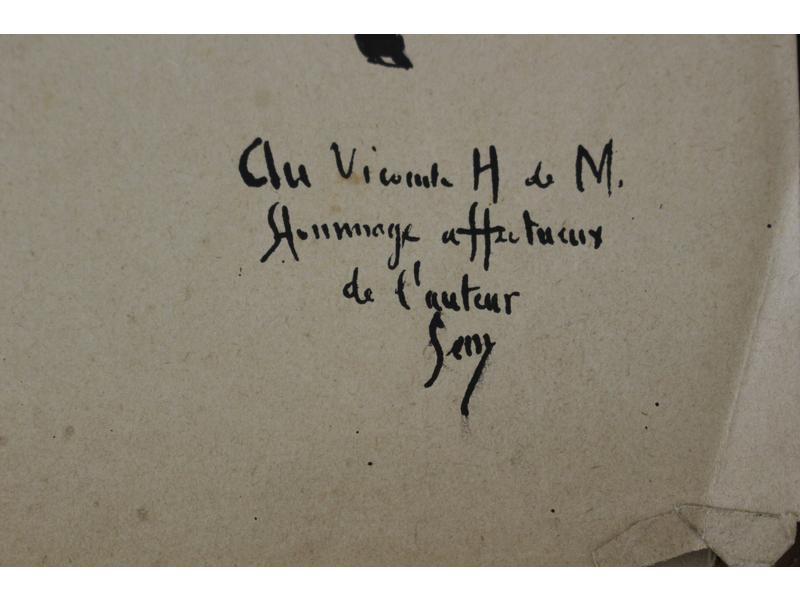 Au Vicomte H de M.
Hommage affectueux
de l'auteur
Sem